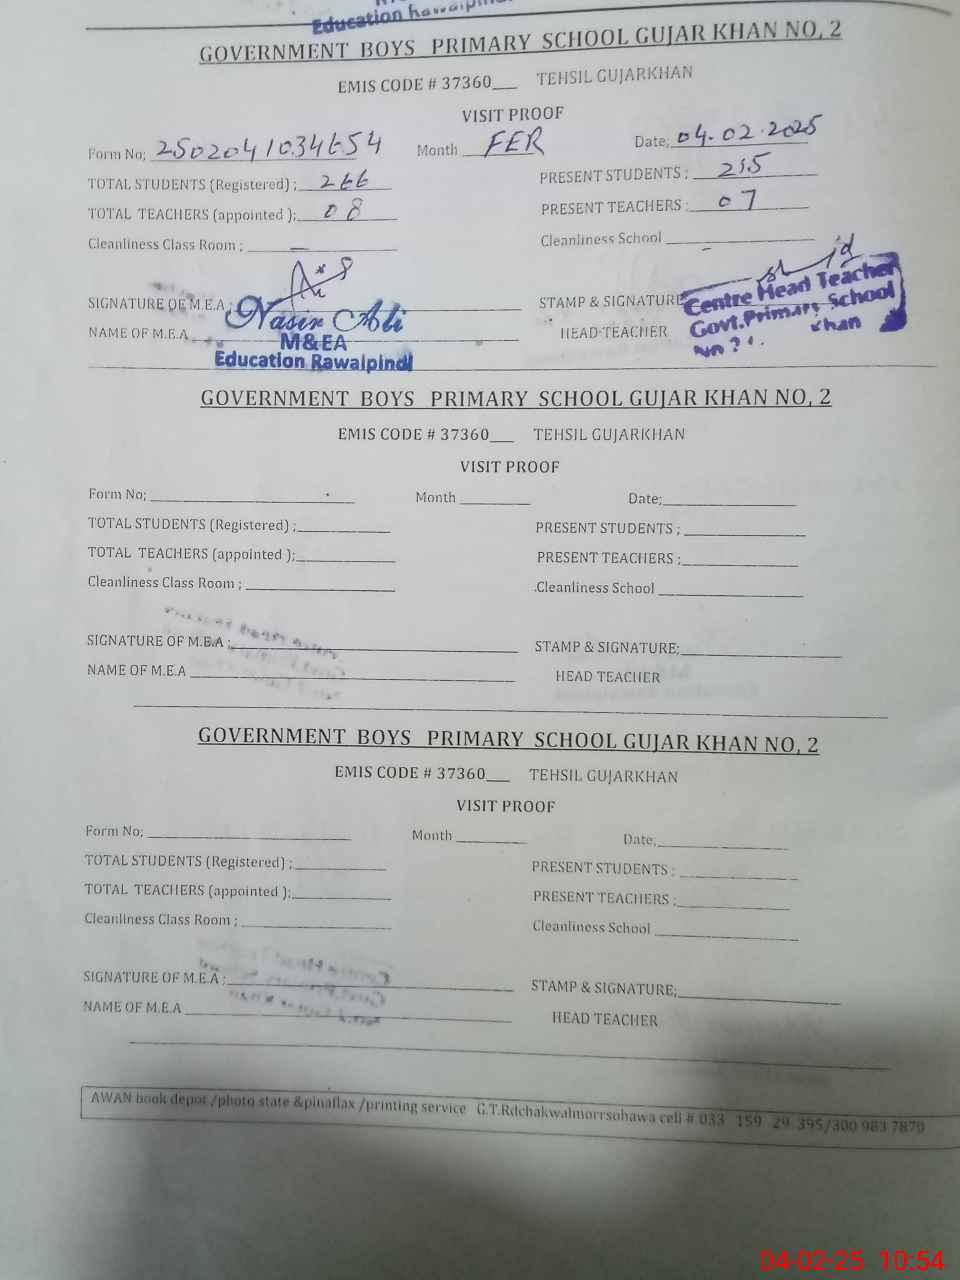 Education Rawalpindi
GOVERNMENT BOYS PRIMARY SCHOOL GUJAR KHAN NO, 2
EMIS CODE # 37360___ TEHSIL GUJARKHAN
VISIT PROOF
Form No; 2502041034654 Month FER Date; 04.02.2025
TOTAL STUDENTS (Registered) ; 266 PRESENT STUDENTS ; 215
TOTAL TEACHERS (appointed ); 08 PRESENT TEACHERS : 07
Cleanliness Class Room ; — Cleanliness School –
SIGNATURE OF M.E.A ; STAMP & SIGNATURE
Centre Head Teacher
Govt.Primary School
Khan
NAME OF M.E.A HEAD TEACHER
Nasir Ali
M&EA
Education Rawalpindi
GOVERNMENT BOYS PRIMARY SCHOOL GUJAR KHAN NO, 2
EMIS CODE # 37360___ TEHSIL GUJARKHAN
VISIT PROOF
Form No; Month Date;
TOTAL STUDENTS (Registered) ; PRESENT STUDENTS ;
TOTAL TEACHERS (appointed ); PRESENT TEACHERS ;
Cleanliness Class Room ; Cleanliness School
SIGNATURE OF M.E.A ; STAMP & SIGNATURE;
NAME OF M.E.A HEAD TEACHER
GOVERNMENT BOYS PRIMARY SCHOOL GUJAR KHAN NO, 2
EMIS CODE # 37360___ TEHSIL GUJARKHAN
VISIT PROOF
Form No; Month Date;
TOTAL STUDENTS (Registered) ; PRESENT STUDENTS ;
TOTAL TEACHERS (appointed ); PRESENT TEACHERS ;
Cleanliness Class Room ; Cleanliness School
SIGNATURE OF M.E.A ; STAMP & SIGNATURE;
NAME OF M.E.A HEAD TEACHER
AWAN book depot /photo state &pinaflax /printing service G.T.Rdchakwalmorrsohawa cell # 033 159 29 395/300 983 7870
04-02-25 10:54